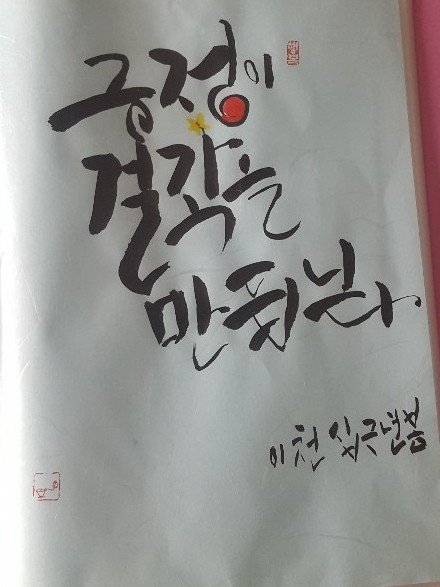 긍정이
걸작을
만듭니다
이천 십구년 봄